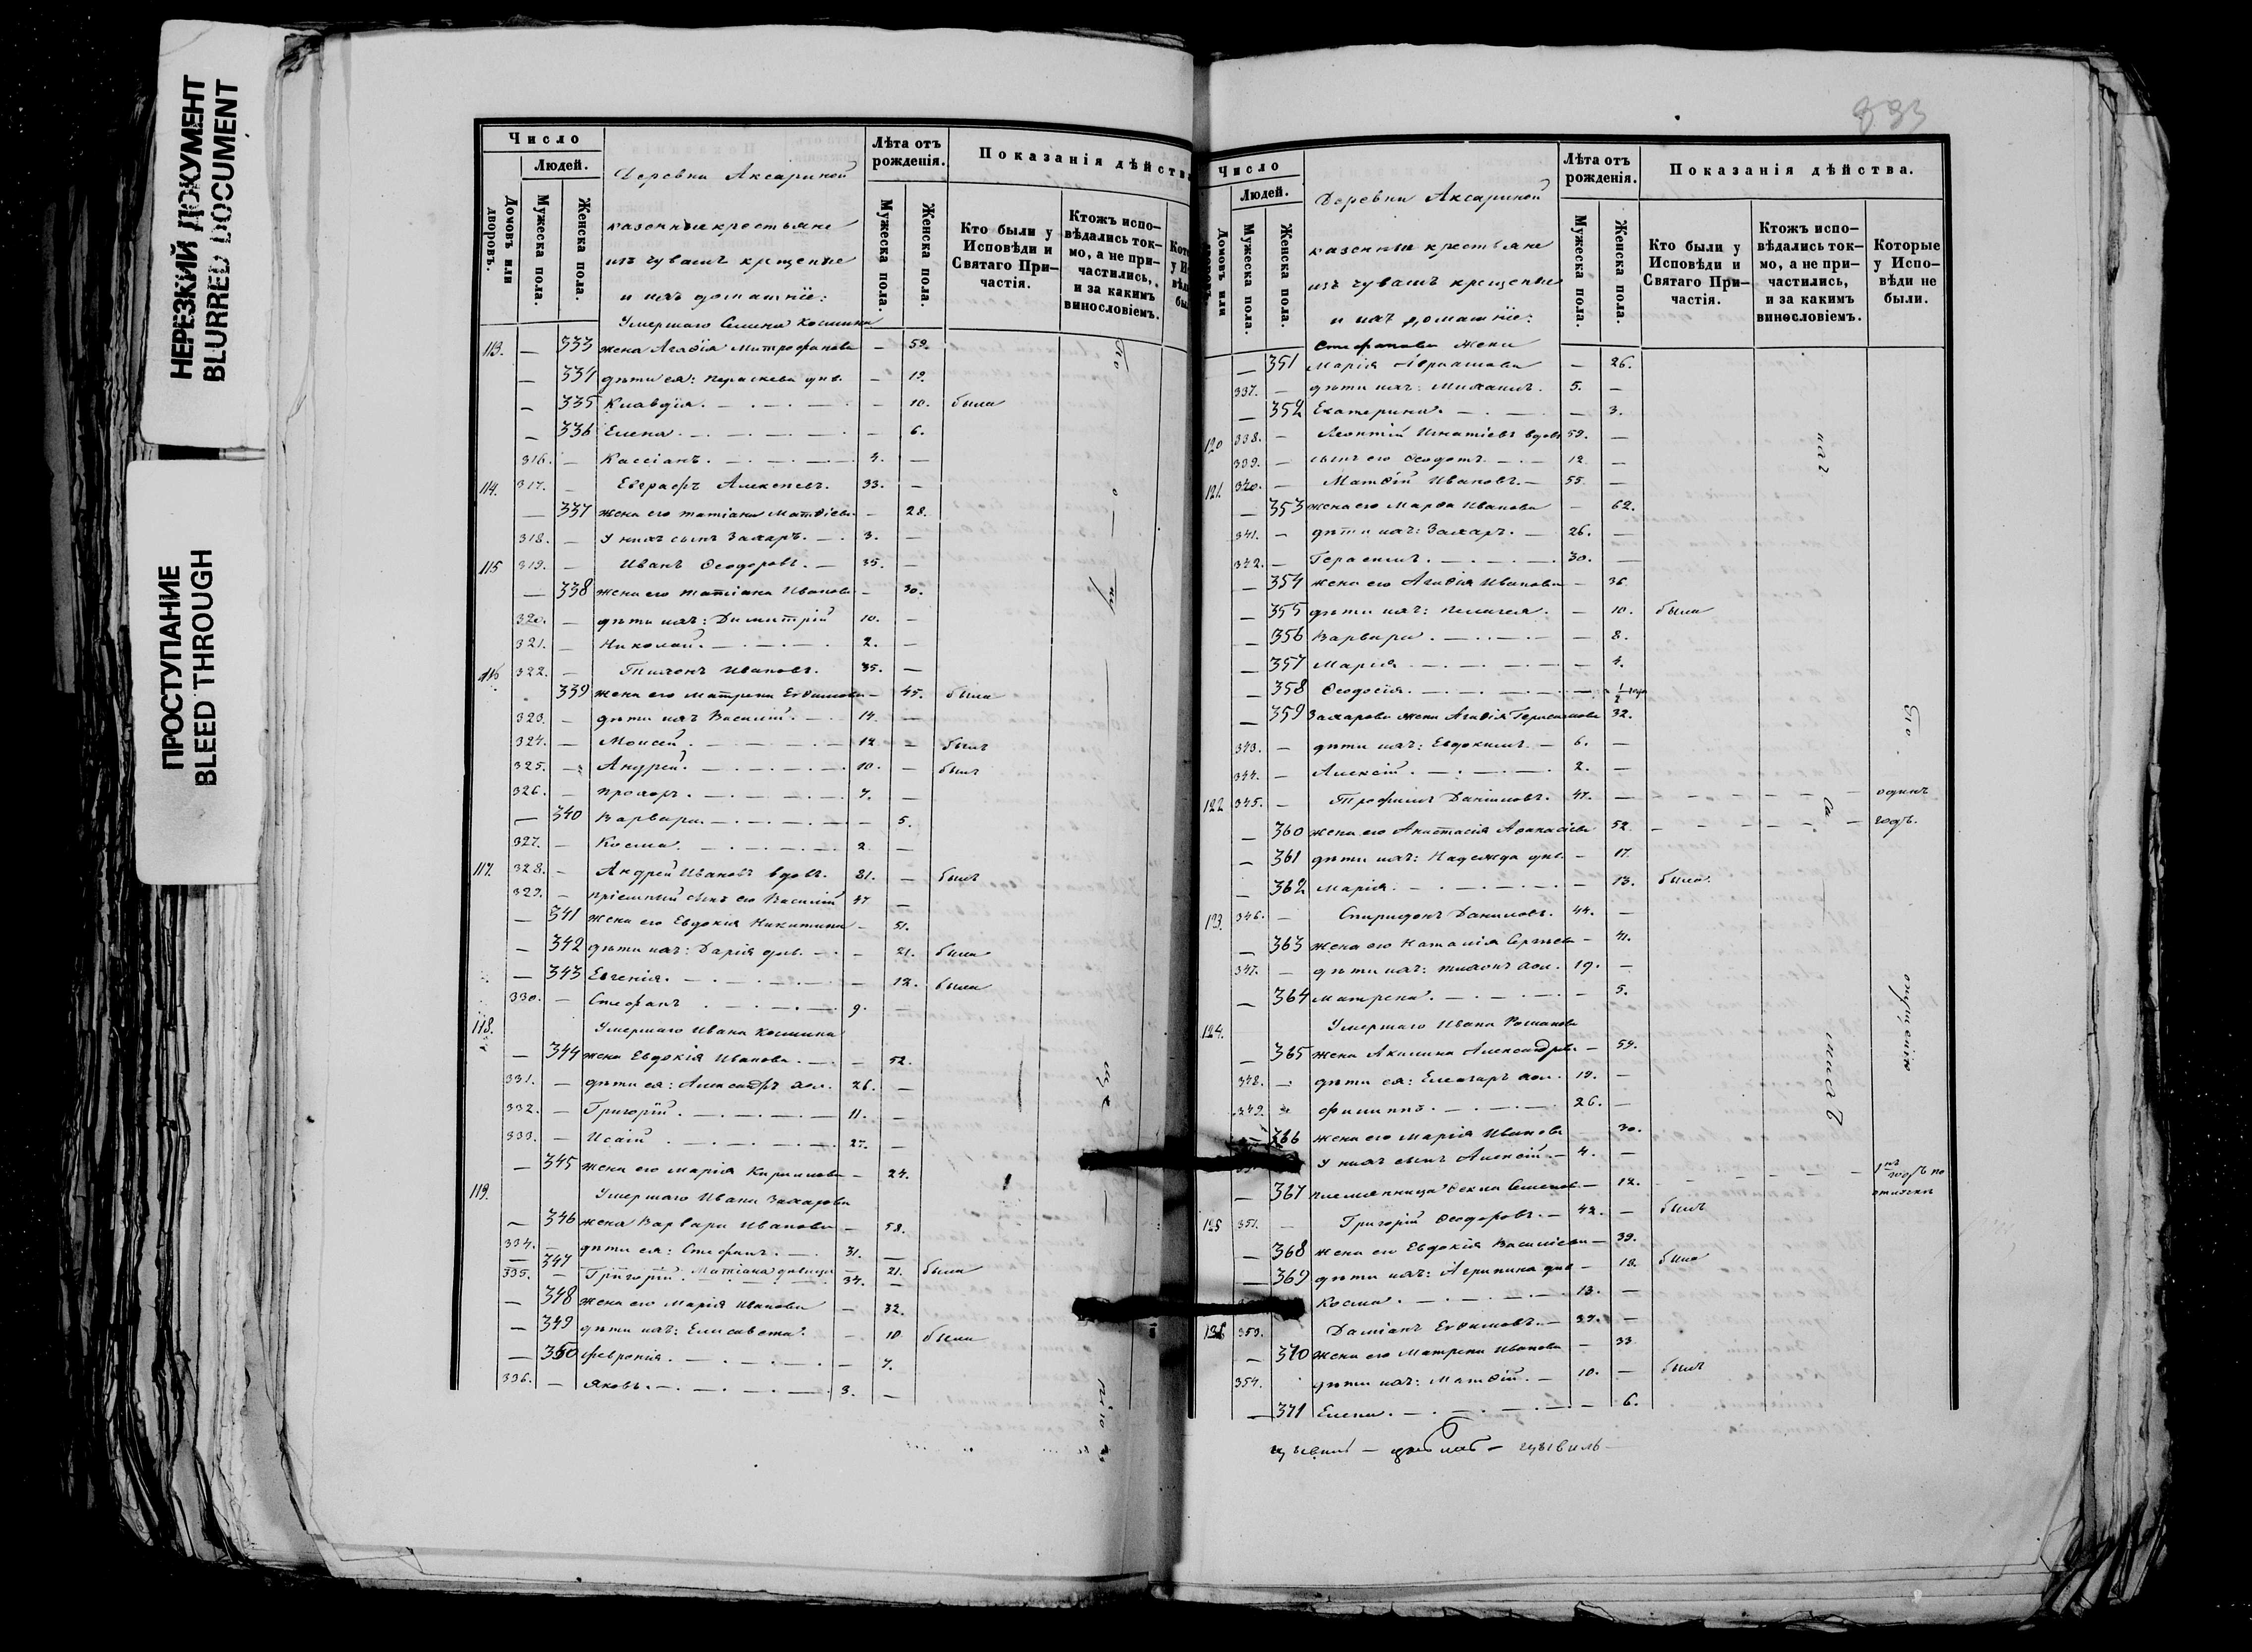 НЕРЕЗКИЙ ДОКУМЕНТ
BLURRED DOCUMENT
ПРОСТУПАНИЕ
BLEED THROUGH
Число
Людей.
Домовъ или дворовъ.
Мужеска пола.
Женска пола.
Деревни Аксариной
казенные крестьяне
изъ чувашъ крещеные
и ихъ домашніе:
Лѣта отъ рожденія.
Мужеска пола.
Женска пола.
Показанія дѣйства
Кто были у Исповѣди и Святаго Причастія.
Ктожъ исповѣдались токмо, а не причастились, и за какимъ винословіемъ.
Умершаго Семена Кошкина
113. — 333 жена Агаѳія Митрофанова — 59.
— 334 дѣти ея: Параскева дѣв. — 19.
— 335 Клавдія. — 10. была
— 336 Елена. — 6.
316. — Кассіанъ. 4. —
114. 317. — Евграфъ Алексѣевъ. 33. —
— 337 жена его Татіана Матѳіева — 28.
318. — У нихъ сынъ Захаръ. 3. —
115 319. — Иванъ Ѳеодоровъ. 35. —
— 338 жена его Татіана Иванова — 30.
320. — дѣти ихъ: Димитрій 10. —
321. — Николай. 2. —
116 322. — Тихонъ Ивановъ. 35. —
339 жена его Матрена Евѳимова — 45. была
323. — дѣти ихъ Василій. 14. —
324. — Моисей. 12 — былъ
325. — Андрей. 10. — былъ
326. — Прохоръ. 7. —
— 340 Варвара. — 5.
327. — Косма. 2. —
117. 328. — Андрей Ивановъ вдовъ. 81. — былъ
329. — пріемный сынъ его Василій 47 —
— 341 жена его Евдокія Никитина — 51.
— 342 дѣти ихъ: Дарія дѣв. — 21. была
— 343 Евгенія. — 12. была
330. — Стефанъ 9. —
118. Умершаго Ивана Кошкина
— 344 жена Евдокія Иванова. — 52.
331. — дѣти ея: Александръ хол. 26. —
332. — Григорій. 11. —
333. — Исаій 27. —
— 345 жена его Марія Кириллова — 24.
119. Умершаго Ивана Захарова
— 346 жена Варвара Иванова — 58.
334. — дѣти ея: Стефанъ. 31. —
— 347 Татіана дѣвица — 21. была
335. — Григорій. 34. —
— 348 жена его Марія Иванова — 32.
— 349 дѣти ихъ: Елисавета. — 10 была
— 350 Февронія. — 7.
336. — Яковъ. 3. —
Число
Людей.
Домовъ или дворовъ.
Мужеска пола.
Женска пола.
Деревни Аксариной
казенные крестьяне
изъ чувашъ крещеные
и ихъ домашніе:
Лѣта отъ рожденія.
Мужеска пола.
Женска пола.
Показанія дѣйства.
Кто были у Исповѣди и Святаго Причастія.
Ктожъ исповѣдались токмо, а не причастились, и за какимъ винословіемъ.
Которые у Исповѣди не были.
Стефанова жена
— 351 Марія — 26.
337. — дѣти ихъ: Михаилъ. 5. —
— 352 Екатерина. — 3.
120 338. — Леонтій Игнатіевъ вдовъ 59. —
339. — сынъ его Ѳеодотъ. 12 —
121. 340. — Матѳій Ивановъ. 55. —
— 353 жена его Марѳа Иванова — 62.
341. — дѣти ихъ: Захаръ. 26. —
342. — Герасимъ. 30. —
— 354 жена его Агаѳія Иванова — 36
— 355 дѣти ихъ: Пелагея. — 10. была
— 356 Варвара. — 8.
— 357 Марія. — 4.
— 358 Ѳеодосія. — 1/2 года
— 359 Захарова жена Агаѳія Герасимова 32.
343. — дѣти ихъ: Евдокимъ. 6. —
344. — Алексій. 2. —
122 345. — Трофимъ Даниловъ. 47. — одинъ
— 360 жена его Анастасія Аѳанасіева 52. — годъ.
— 361 дѣти ихъ: Надежда дѣв. — 17.
— 362 Марія. — 13. была
123. 346. — Спиридонъ Даниловъ. 44. —
— 363 жена его Наталія Сергѣева — 41.
347. — дѣти ихъ: Тихонъ хол. 19. —
— 364 Матрена. — 5.
124. Умершаго Ивана Романова
— 365 жена Акилина Александрова — 59.
348. — дѣти ея: Елеазаръ хол. 19. —
349. Филиппъ. 26. —
— 366 жена его Марія Иванова 30.
У нихъ сынъ Алексій. 4. —
— 367 племянница Ѳекла Семенова — 12. — 1нъ годъ по отлучкѣ
125 351. — Григорій Ѳеодоровъ. 42. — былъ
— 368 жена его Евдокія Василіева — 39.
— 369 дѣти ихъ: Агрипина дѣв — 18. была
Косма. 13. —
126 353. Даміанъ Евѳимовъ. 37. —
— 370 жена его Матрена Иванова — 33
354. дѣти ихъ: Матѳій. 10. — былъ
— 371 Елена. — 6.